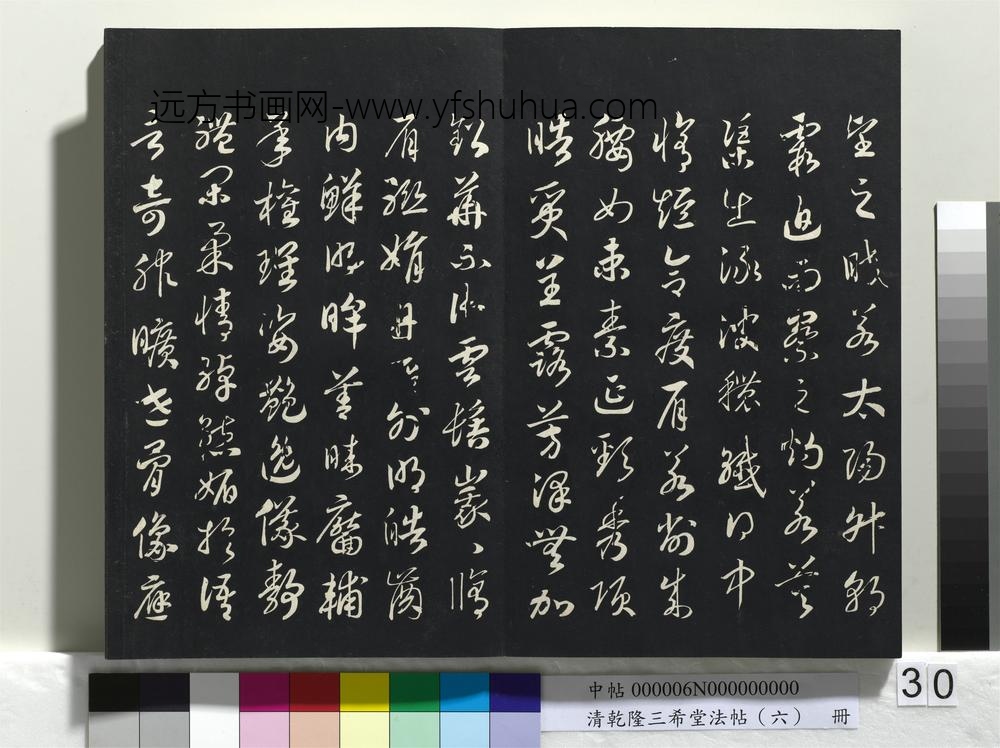 远方书画网-www.yfshuhua.com
望之皎若太陽升朝
霞迫而察之灼若芙
渠出淥波穠纖得中
脩短合度肩若削成
腰如束素延頸秀項
皓質呈露芳澤無加
鉛華不御雲髻峩々脩
眉聯娟丹脣外朗皓齒
內鮮明眸善睞靨輔
承權瓌姿艷逸儀靜
體閑柔情綽態媚於語
言奇服曠世骨像應
中帖 000006N000000000
清乾隆三希堂法帖（六） 冊
30